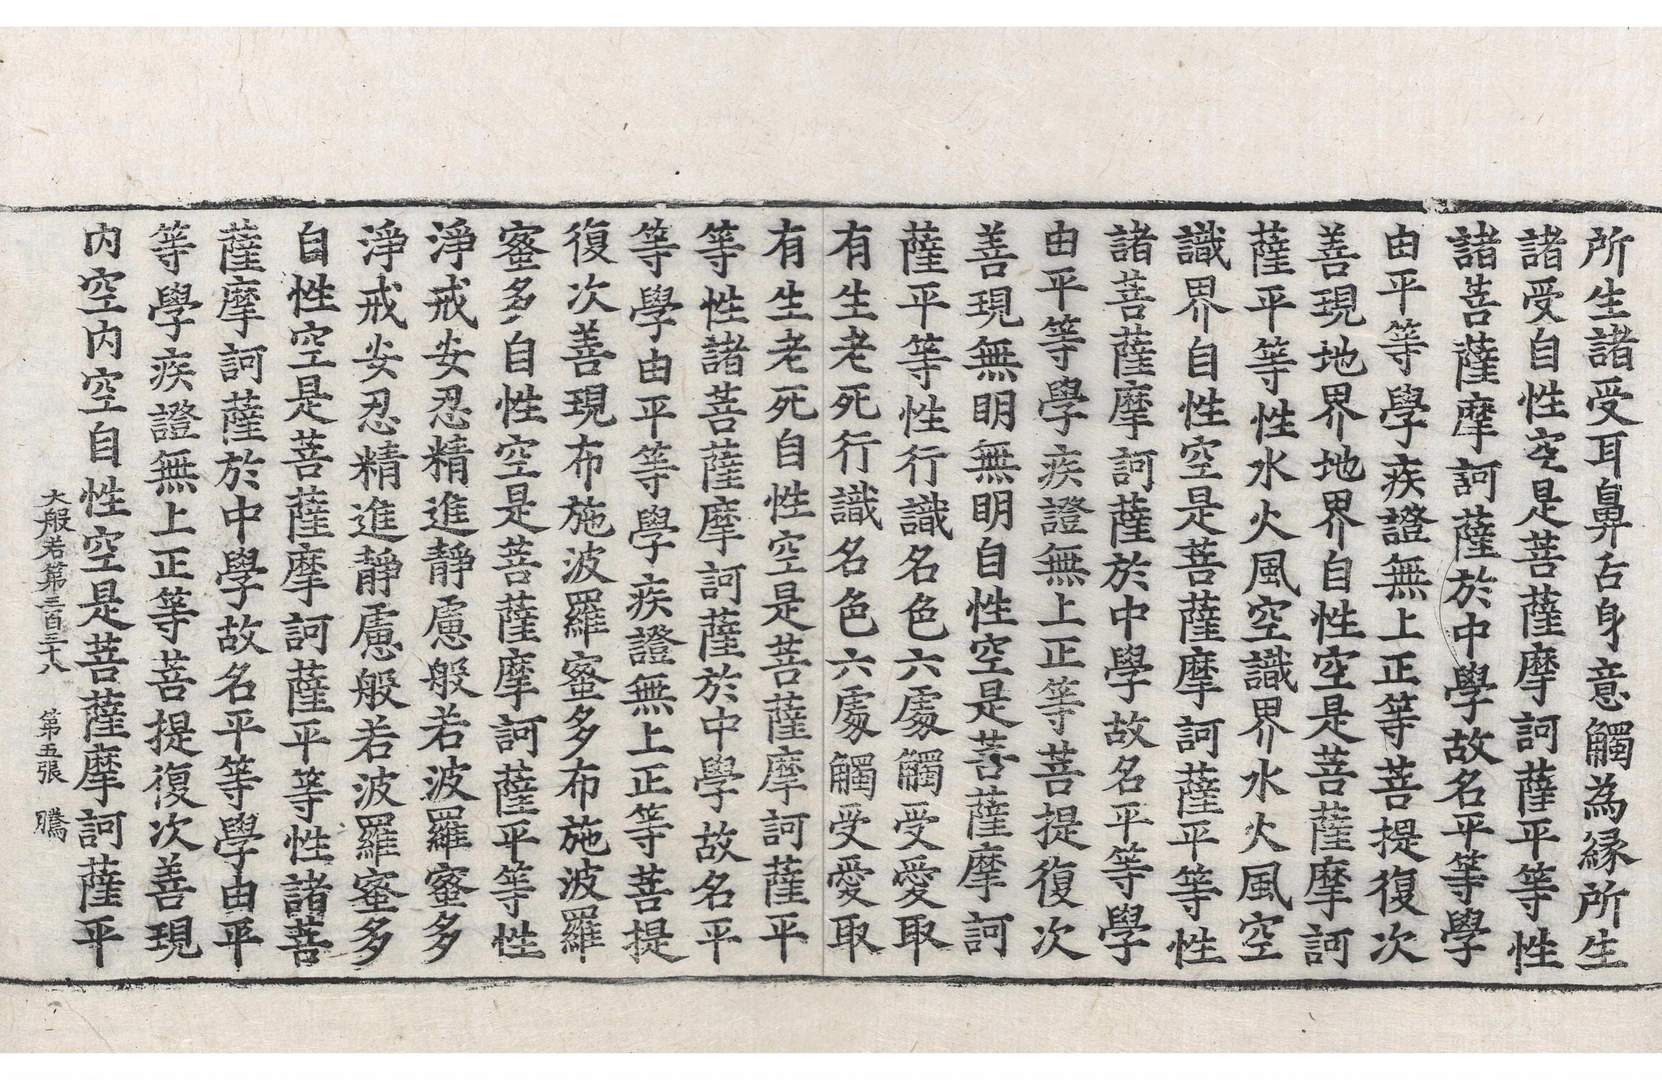 所生諸受耳鼻舌身意觸為縁所生
諸受自性空是菩薩摩訶薩平等性
諸菩薩摩訶薩於中學故名平等學
由平等學疾證無上正等菩提復次
善現地界地界自性空是菩薩摩訶
薩平等性水火風空識界水火風空
識界自性空是菩薩摩訶薩平等性
諸菩薩摩訶薩於中學故名平等學
由平等學疾證無上正等菩提復次
善現無明無明自性空是菩薩摩訶
薩平等性行識名色六處觸受愛取
有生老死行識名色六處觸受愛取
有生老死自性空是菩薩摩訶薩平
等性諸菩薩摩訶薩於中學故名平
等學由平等學疾證無上正等菩提
復次善現布施波羅蜜多布施波羅
蜜多自性空是菩薩摩訶薩平等性
淨戒安忍精進靜慮般若波羅蜜多
淨戒安忍精進靜慮般若波羅蜜多
自性空是菩薩摩訶薩平等性諸菩
薩摩訶薩於中學故名平等學由平
等學疾證無上正等菩提復次善現
内空内空自性空是菩薩摩訶薩平
大般若第三百三十八 第五張 騰